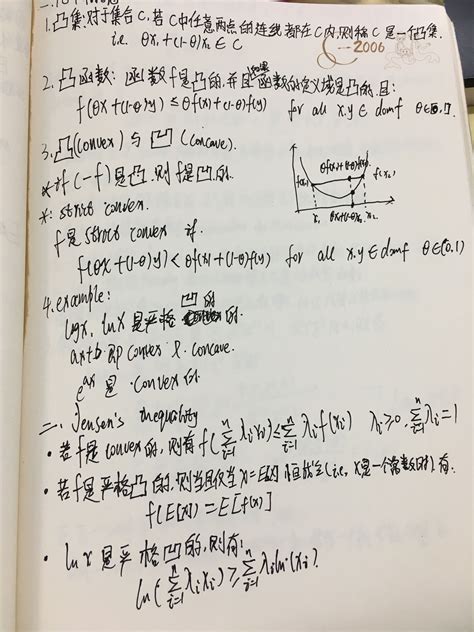 1.凸集:对于集合C,若C中任意两点的连线都在C内,则称C是一个凸集.
i.e. θx₁+(1-θ)x₂ ∈ C
2006
2.凸函数: 函数f是凸的,并且函数的定义域是凸的,且:
f(θx+(1-θ)y) ≤ θf(x)+(1-θ)f(y) for all x,y ∈ domf
3.凸(convex) 与 凹 (concave).
if (-f)是凸,则f是凹的.
*: strict convex.
f是 strict convex if
f(θx+(1-θ)y) < θf(x)+(1-θ)f(y) for all x,y ∈ domf θ∈(0,1)
θf(x₁)+(1-θ)f(x₂)
f(x₁)
f(x₂)
x₁ θx₁+(1-θ)x₂ x₂
4.example:
logx, lnx 是严格凹的.
ax+b 即 convex & concave.
e^{ax} 是 convex 的.
二、Jensen's inequality
• 若f是convex的,则有 f(∑_{i=1}^{n} λᵢxᵢ) ≤ ∑_{i=1}^{n} λᵢf(xᵢ) λᵢ≥0, ∑_{i=1}^{n} λᵢ=1
• 若f是严格凸的,则当且仅当x=E[x]恒成立(i.e, x是一个常数时),有.
f(E[x])=E[f(x)]
• lnx 是严格凹的,则有:
ln(∑_{i=1}^{n} λᵢxᵢ) ≥ ∑_{i=1}^{n} λᵢln(xᵢ).